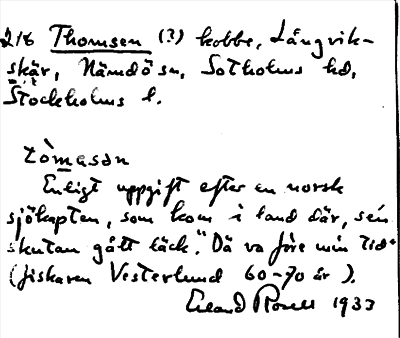 216 Thomsen (3) kobbe, Långvik-
skär, Nämdö sn, Sotholms hd,
Stockholms l.
tòmasən
Enligt uppgift efter en norsk
sjökapten, som kom i land där, sen
skutan gått läck. "Dä va före min tid"
(fiskaren Vesterlund 60-70 år).
Erland Rosell 1933